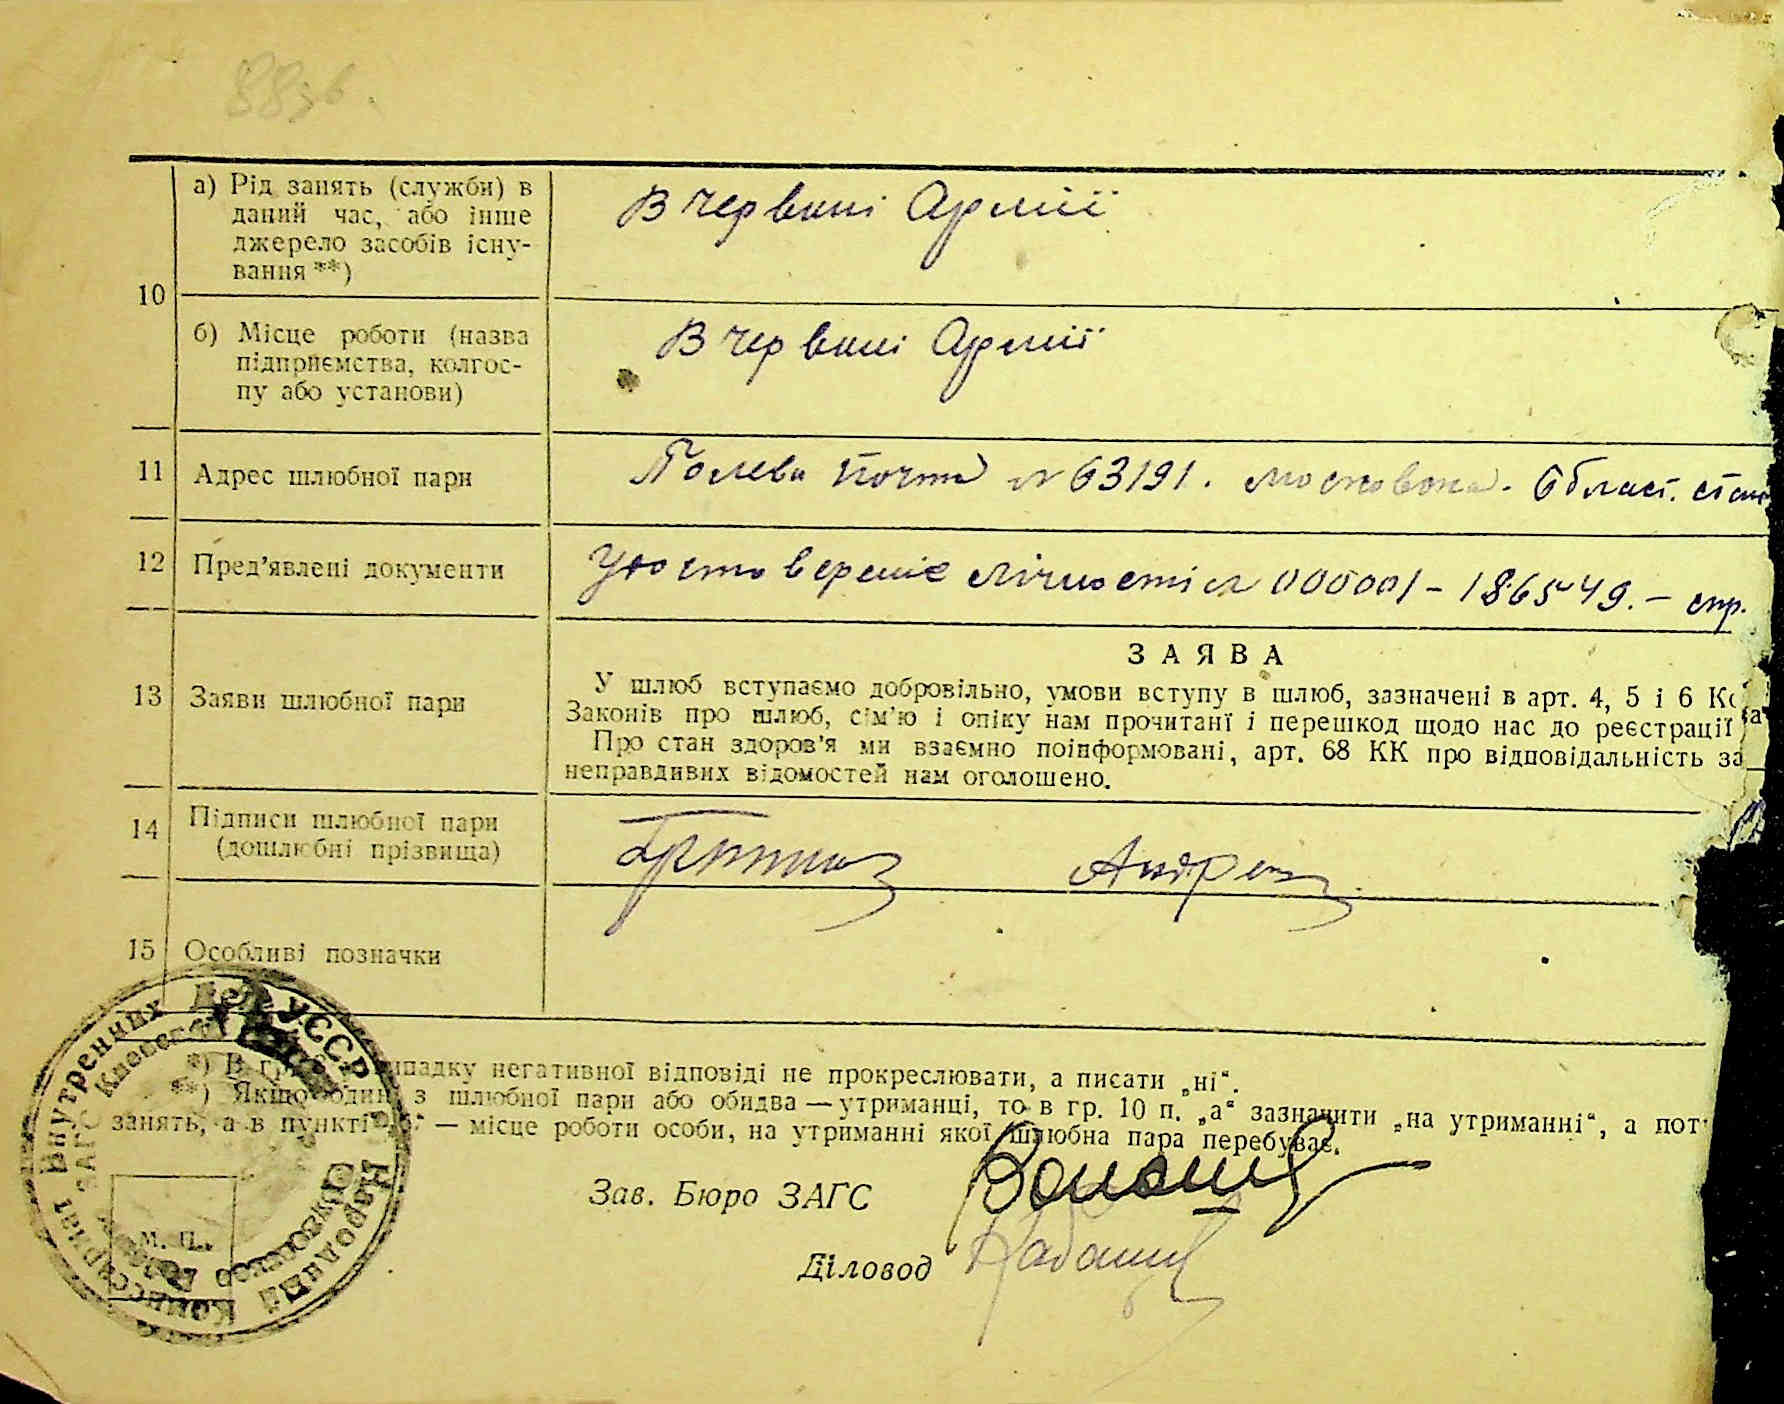 а) Рід занять (служби) в
даний час, або інше
джерело засобів існу-
вання **)
В червоні Армії
10
б) Місце роботи (назва
підприємства, колгос-
пу або установи)
В червоні Армії
11 Адрес шлюбної пари
Полева почта № 63191. Московска. Област. ст
12 Пред'явлені документи
Удостовереніє лічності № 000001 - 186549. - спр.
13 Заяви шлюбної пари
ЗАЯВА
У шлюб вступаємо добровільно, умови вступу в шлюб, зазначені в арт. 4, 5 і 6 Ко
Законів про шлюб, сім'ю і опіку нам прочитані і перешкод щодо нас до реєстрації
Про стан здоров'я ми взаємно поінформовані, арт. 68 КК про відповідальність за
неправдивих відомостей нам оголошено.
14 Підписи шлюбної пари
(дошлюбні прізвища)
15 Особливі позначки
*) В гр. випадку негативної відповіді не прокреслювати, а писати „ні“.
**) Якщо один з шлюбної пари або обидва — утриманці, то в гр. 10 п. „а“ зазначити „на утриманні“, а пот
занять, а в пункті „б“ — місце роботи особи, на утриманні якої шлюбна пара перебуває.
Зав. Бюро ЗАГС
Діловод
М. П.
Народный Комиссариат Внутренних Дел УССР